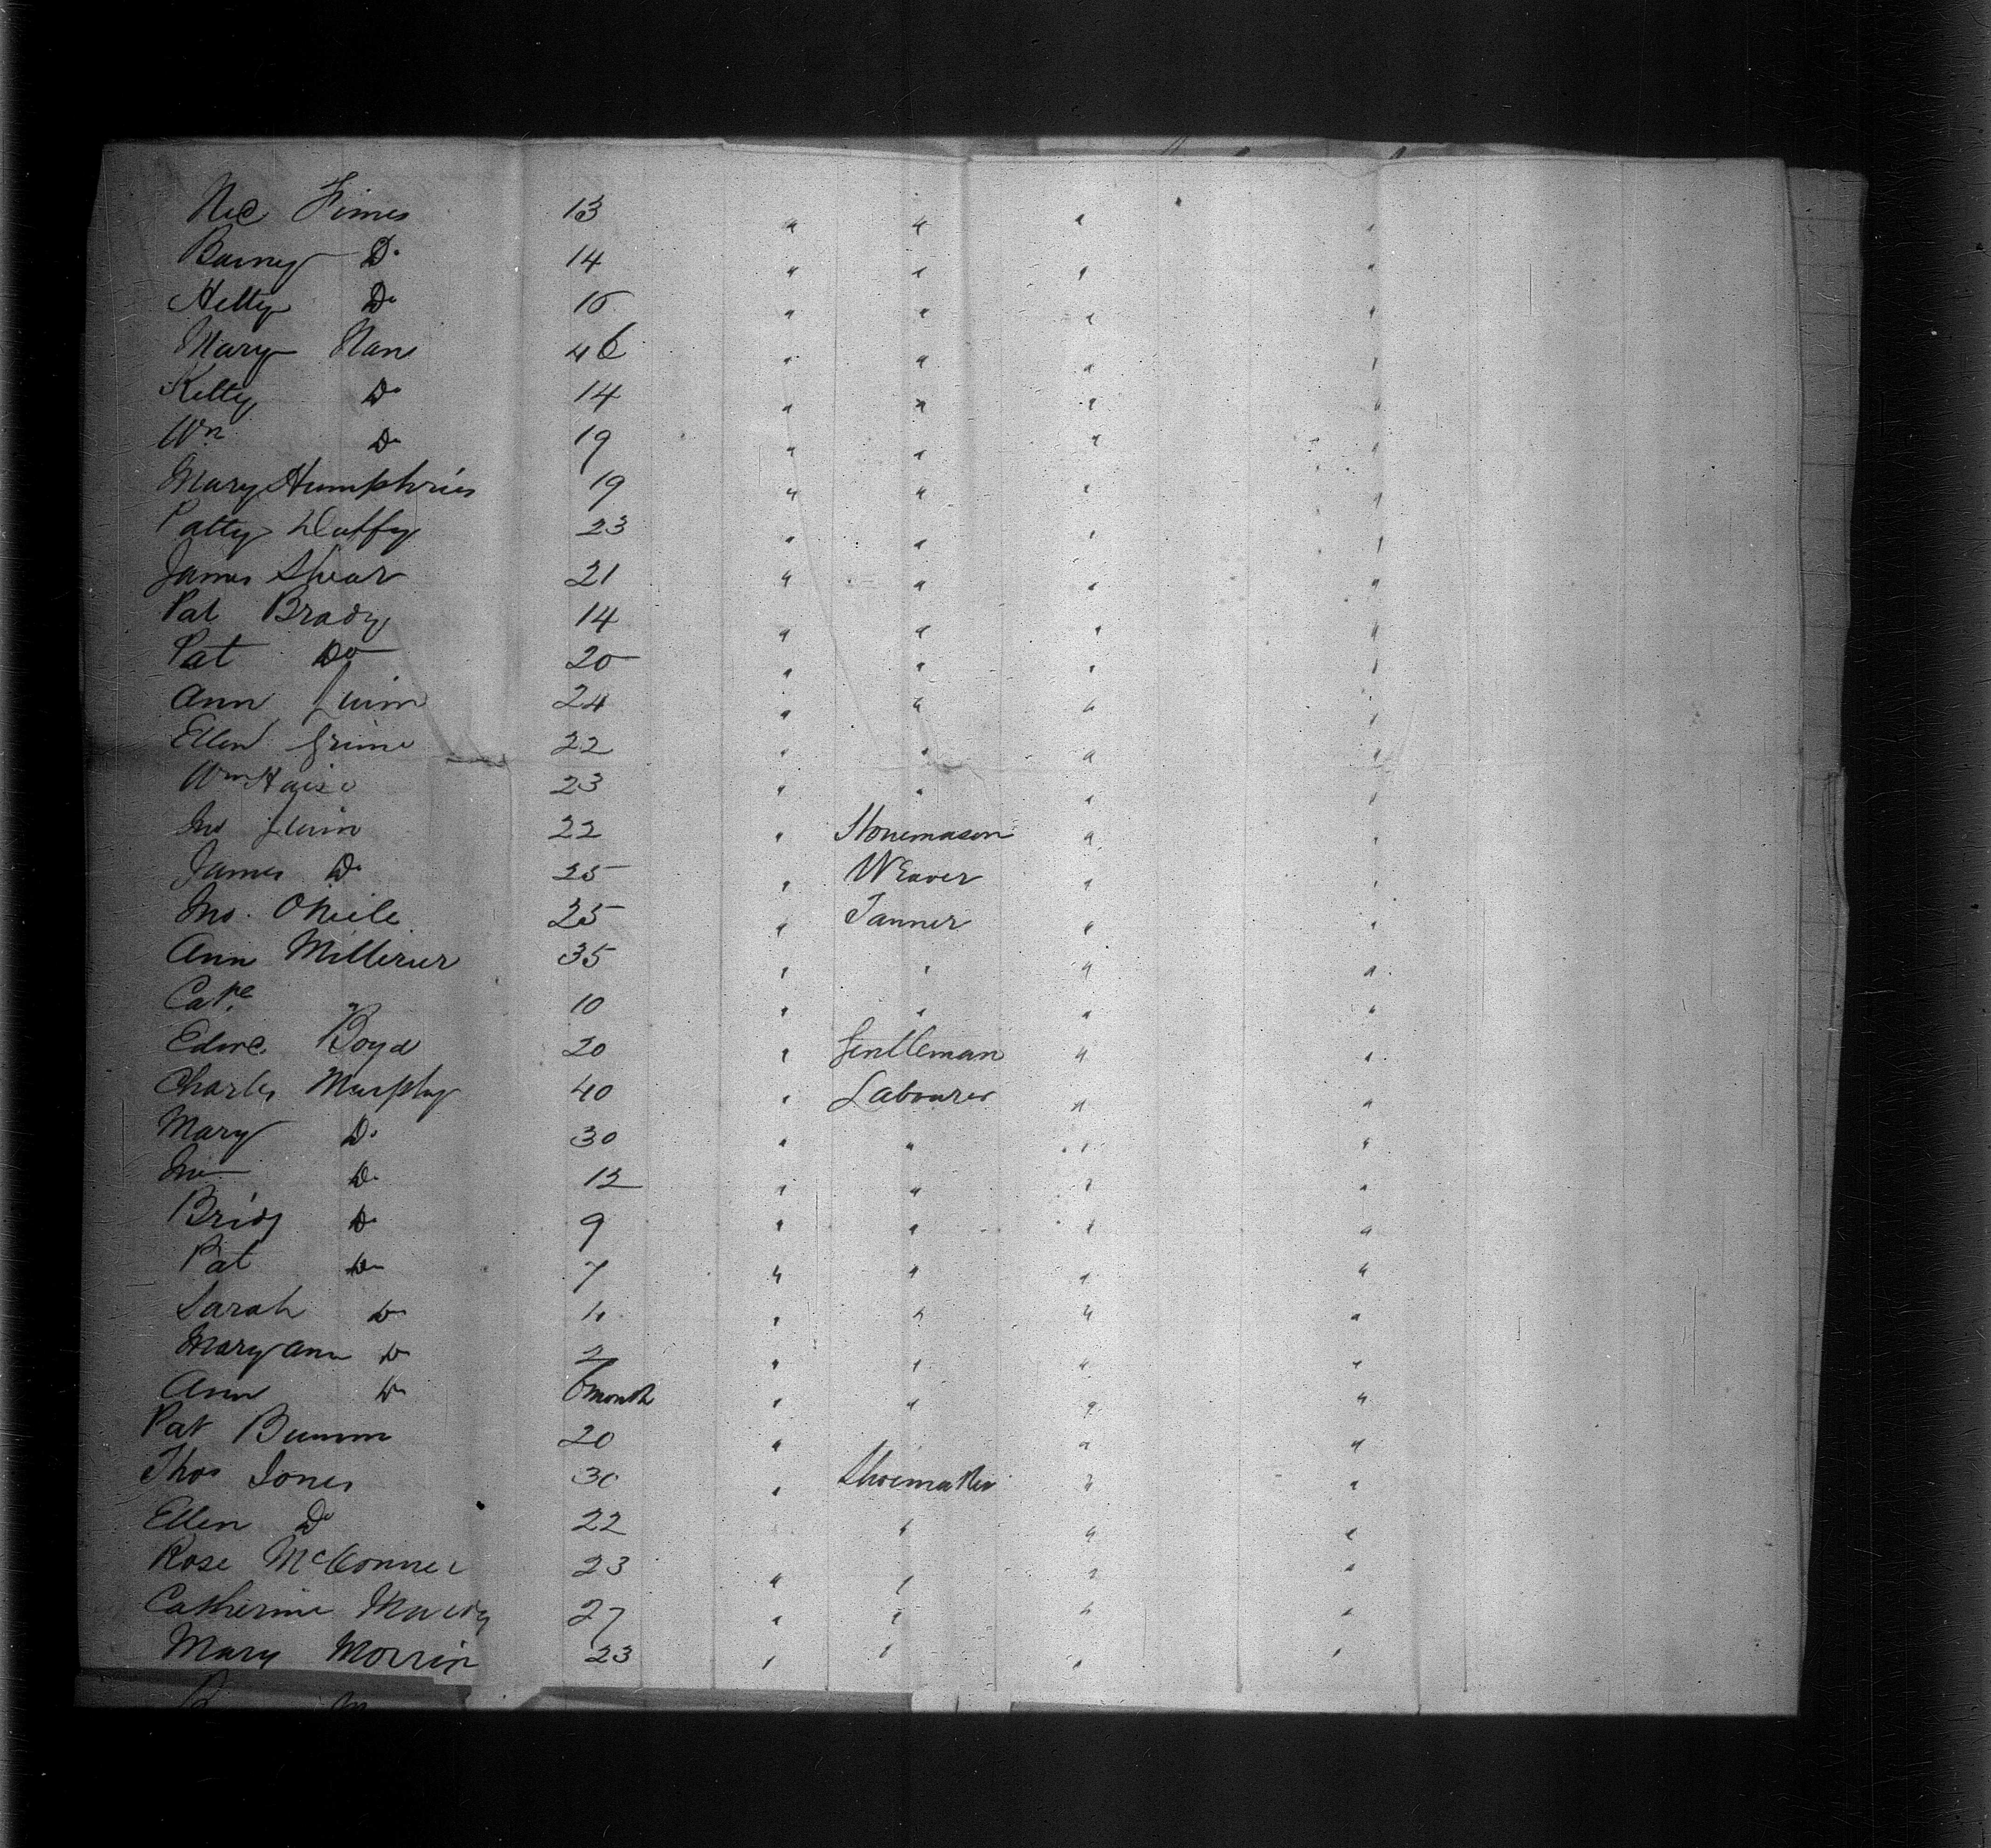 Ned Fimes 13 " " " "
Barney Do 14 " " " "
Hetty Do 16 " " " "
Mary Nan 46 " " " "
Kitty Do 14 " " " "
Wm Do 19 " " " "
Mary Humphries 19 " " " "
Patty Duffy 23 " " " "
James Shear 21 " " " "
Pat Brady 14 " " " "
Pat Do 20 " " " "
Ann Quinn 24 " " " "
Ellen Grime 22 " " " "
Wm 23 " " " "
Jno Quin 22 " Stonemason " "
James Do 25 " Weaver " "
Jno. ONeile 25 " Tanner " "
Ann Millerier 35 " " " "
Cathe 10 " " " "
Edwd. Boyd 20 " Gentleman " "
Charles Murphy 40 " Labourer " "
Mary Do 30 " " " "
Jno Do 12 " " " "
Bridg Do 9 " " " "
Pat Do 7 " " " "
Sarah Do 4 " " " "
Mary Ann Do 2 " " " "
Ann Do 6 month " " " "
Pat 20 " " "
Thos Jones 30 " Shoemaker " "
Ellen Do 22 " " "
Rose McConner 23 " " " "
Catherine 27 " " " "
Mary Morrin 23 " " " "